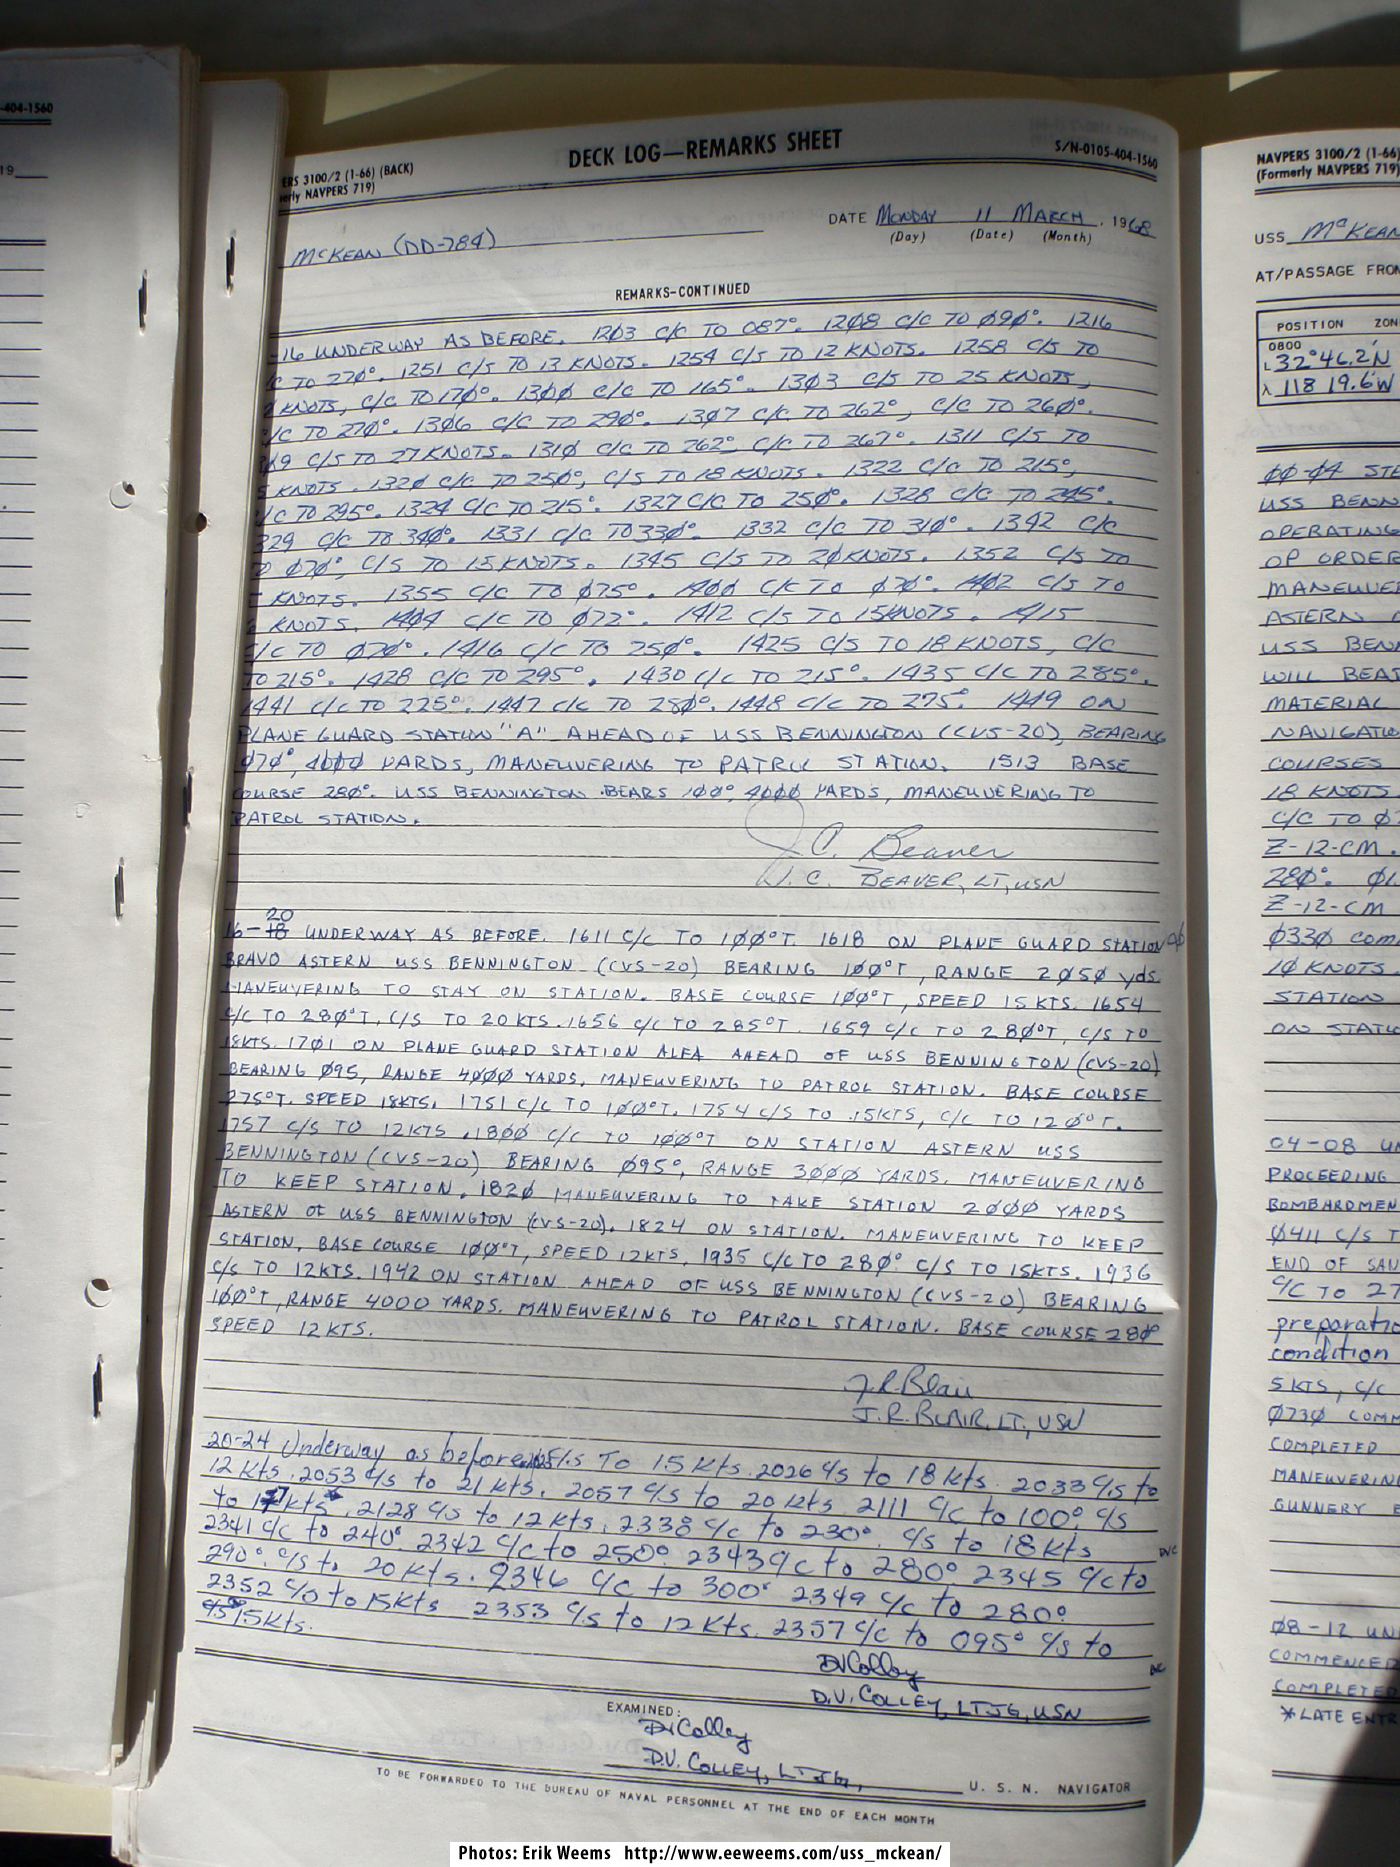 -404-1560
19
ERS 3100/2 (1-66) (BACK)
erly NAVPERS 719)
DECK LOG—REMARKS SHEET
S/N-0105-404-1560
McKEAN (DD-784)
DATE MONDAY 11 MARCH, 1968
(Day) (Date) (Month)
REMARKS-CONTINUED
-16 UNDERWAY AS BEFORE. 12Ø3 C/C TO Ø87°. 12Ø8 C/C TO Ø9Ø°. 1216
/C TO 27Ø°. 1251 C/S TO 13 KNOTS. 1254 C/S TO 12 KNOTS. 1258 C/S TO
KNOTS, C/C TO 17Ø°. 13ØØ C/C TO 165°. 13Ø3 C/S TO 25 KNOTS,
C/C TO 27Ø°. 13Ø6 C/C TO 29Ø°. 13Ø7 C/C TO 262°, C/C TO 26Ø°.
Ø9 C/S TO 27 KNOTS. 131Ø C/C TO 262° C/C TO 267°. 1311 C/S TO
5 KNOTS. 132Ø C/C TO 25Ø°, C/S TO 18 KNOTS. 1322 C/C TO 215°,
C/C TO 295°. 1324 C/C TO 215°. 1327 C/C TO 25Ø°. 1328 C/C TO 245°.
329 C/C TO 34Ø°. 1331 C/C TO 33Ø°. 1332 C/C TO 31Ø°. 1342 C/C
Ø7Ø°, C/S TO 15 KNOTS. 1345 C/S TO 2Ø KNOTS. 1352 C/S TO
KNOTS. 1355 C/C TO Ø75°. 14ØØ C/C TO Ø7Ø°. 14Ø2 C/S TO
KNOTS. 14Ø4 C/C TO Ø72°. 1412 C/S TO 15 KNOTS. 1415
C/C TO Ø7Ø°. 1416 C/C TO 25Ø°. 1425 C/S TO 18 KNOTS, C/C
TO 215°. 1428 C/C TO 295°. 1430 C/C TO 215°. 1435 C/C TO 285°.
1441 C/C TO 225°. 1447 C/C TO 28Ø°. 1448 C/C TO 275°. 1449 ON
PLANE GUARD STATION "A" AHEAD OF USS BENNINGTON (CVS-20), BEARING
Ø7Ø°, 4ØØØ YARDS, MANEUVERING TO PATROL STATION. 1513 BASE
COURSE 28Ø°. USS BENNINGTON BEARS 1ØØ°, 4ØØØ YARDS, MANEUVERING TO
PATROL STATION.
J.C. Beaver
J.C. BEAVER, LT, USN
20
16-18 UNDERWAY AS BEFORE. 1611 C/C TO 1ØØ°T. 1618 ON PLANE GUARD STATION
BRAVO ASTERN USS BENNINGTON (CVS-20) BEARING 1ØØ°T, RANGE 2Ø5Ø yds.
MANEUVERING TO STAY ON STATION. BASE COURSE 1ØØ°T, SPEED 15 KTS. 1654
C/C TO 28Ø°T, C/S TO 20 KTS. 1656 C/C TO 285°T. 1659 C/C TO 28Ø°T, C/S TO
18KTS. 17Ø1 ON PLANE GUARD STATION ALFA AHEAD OF USS BENNINGTON (CVS-20)
BEARING Ø95, RANGE 4ØØØ YARDS. MANEUVERING TO PATROL STATION. BASE COURSE
275°T. SPEED 18KTS. 1751 C/C TO 1ØØ°T. 1754 C/S TO 15KTS, C/C TO 12Ø°T.
1757 C/S TO 12KTS. 18ØØ C/C TO 1ØØ°T ON STATION ASTERN USS
BENNINGTON (CVS-20) BEARING Ø95°, RANGE 3ØØØ YARDS. MANEUVERING
TO KEEP STATION. 182Ø MANEUVERING TO TAKE STATION 2ØØØ YARDS
ASTERN OF USS BENNINGTON (CVS-20). 1824 ON STATION. MANEUVERING TO KEEP
STATION. BASE COURSE 1ØØ°T, SPEED 12KTS. 1935 C/C TO 28Ø° C/S TO 15KTS. 1936
C/S TO 12KTS. 1942 ON STATION AHEAD OF USS BENNINGTON (CVS-20) BEARING
1ØØ°T, RANGE 4000 YARDS. MANEUVERING TO PATROL STATION. BASE COURSE 28Ø°
SPEED 12 KTS.
J.R. Blair
J.R. BLAIR, LT, USN
20-24 Underway as before. C/S TO 15 Kts. 2026 C/s to 18 Kts. 2033 C/s to
12 Kts. 2053 C/s to 21 Kts. 2057 C/s to 20 Kts. 2111 C/c to 100°. C/s
to 17 Kts. 2128 C/s to 12 Kts. 2338 C/c to 230°. C/s to 18 Kts
2341 C/c to 240°. 2342 C/c to 250°. 2343 C/c to 280°. 2345 C/c to
290°. C/s to 20 Kts. 2346 C/c to 300° 2349 C/c to 280°.
2352 C/s to 15 Kts 2353 C/s to 12 Kts. 2357 C/c to 095° C/s to
15 Kts.
DVC
DVC
DVColley
D.V. COLLEY, LTJG, USN
EXAMINED:
DVColley
D.V. COLLEY, LTJG, U. S. N. NAVIGATOR
TO BE FORWARDED TO THE BUREAU OF NAVAL PERSONNEL AT THE END OF EACH MONTH
NAVPERS 3100/2 (1-66)
(Formerly NAVPERS 719)
USS McKEAN
AT/PASSAGE FROM
POSITION ZON
0800
L 32°46.2'N
λ 118 19.6'W
ØØ-Ø4 STE
USS BENN
OPERATING
OP ORDER
MANEUVER
ASTERN
USS BEN
WILL BEAR
MATERIAL
NAVIGATIO
COURSES
18 KNOTS.
C/C TO Ø7
Z-12-CM.
28Ø°. Ø1
Z-12-CM
Ø33Ø COM
1Ø KNOTS
STATION
ON STATIO
04-08 UN
PROCEEDING
BOMBARDMEN
Ø411 C/S T
END OF SAN
C/C TO 27
preparatio
condition
5 KTS, C/C
Ø73Ø COMM
COMPLETED
MANEUVERING
GUNNERY E
Ø8-12 UN
COMMENCED
COMPLETED
*LATE ENTR
Photos: Erik Weems http://www.eeweems.com/uss_mckean/